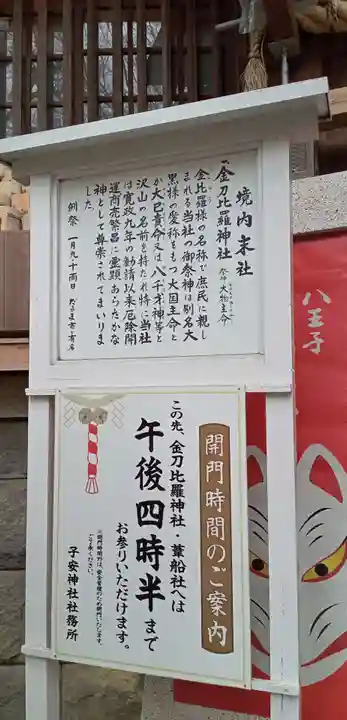 境内末社
金刀比羅神社 祭神 大物主命
金比羅様の名称で庶民に親し
まれる当社の御祭神は別名大
黒様の愛称をもつ大国主命と
か大己貴命又は八千矛神等と
沢山の名前を持たれ特に当社
は寛政九年の勧請以来厄除開
運商売繁昌に霊顕あらたかな
神として尊崇されてまいりま
した
例祭 一月九十両日 だるま市で有名
開門時間のご案内
この先、金刀比羅神社・葦船社へは
午後四時半まで
お参りいただけます。
※閉門時間外は、安全管理のため閉門いたします。
ご了承ください。
子安神社社務所
八王子